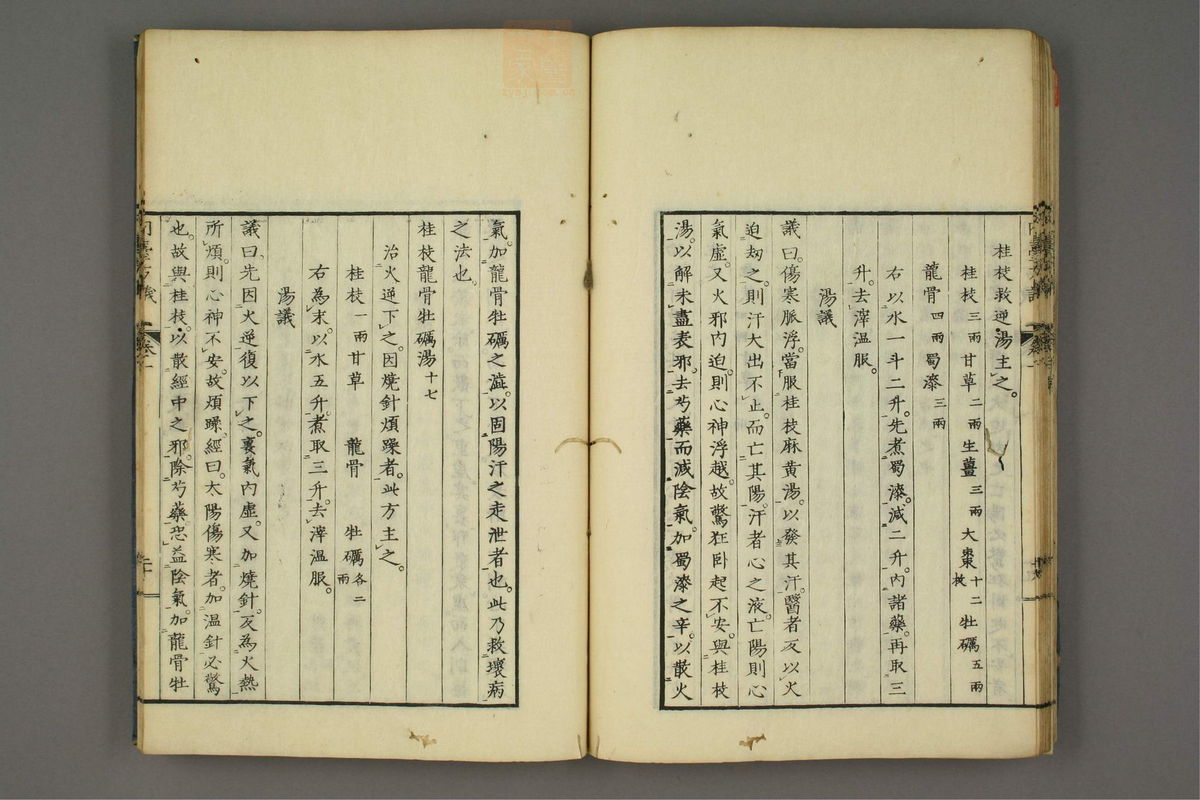 桂枝救逆湯主之。
桂枝三兩甘草二兩生薑三兩大棗十二枚牡礪五兩
龍骨四兩蜀漆三兩
右以水一斗二升。先煮蜀漆。減二升。內諸藥。再取三
升。去滓溫服。
湯議
議曰。傷寒脈浮。當服桂枝麻黃湯。以發其汗。醫者反以火
迫刼之。則汗大出不止。而亡其陽。汗者心之液。亡陽則心
氣虛。又火邪內迫。則心神浮越。故驚狂卧起不安。與桂枝
湯。以解未盡表邪。去芍藥而減陰氣。加蜀漆之辛。以散火
氣。加龍骨牡礪之澁。以固陽汗之走泄者也。此乃救壞病
之法也。
桂枝龍骨牡礪湯十七
治火逆下之。因燒針煩躁者。此方主之。
桂枝一兩甘草 龍骨 牡礪各二兩
右為末。以水五升。煮取三升。去滓溫服。
湯議
議曰。先因火逆。復以下之。裏氣內虛。又加燒針。反為火熱
所煩。則心神不安。故煩躁。經曰。太陽傷寒者。加溫針必驚
也。故與桂枝。以散經中之邪。除芍藥。恐益陰氣。加龍骨牡